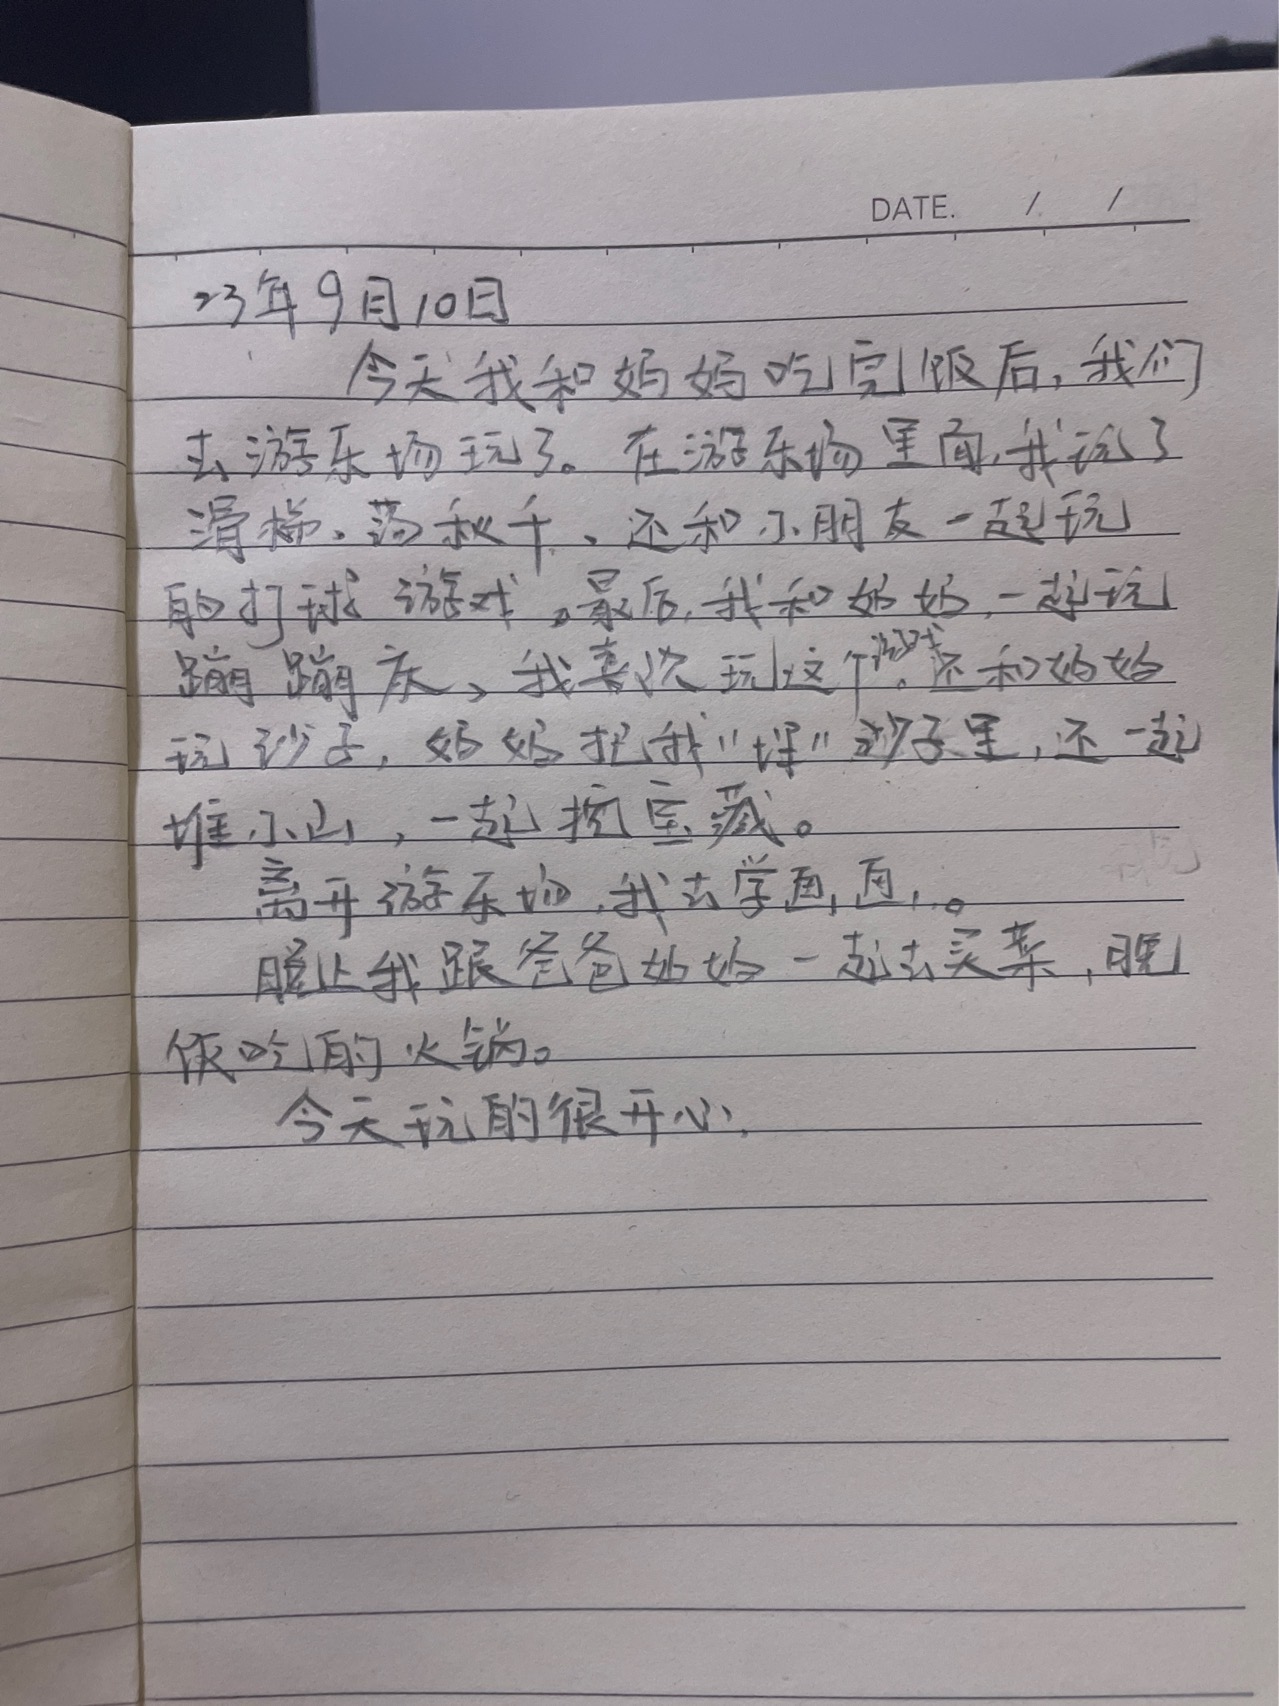 DATE. / /
23年9月10日
今天我和妈妈吃完饭后,我们
去游乐场玩了。在游乐场里面,我玩了
滑梯、荡秋千、还和小朋友一起玩
的打球游戏。最后,我和妈妈,一起玩
蹦蹦床,我喜欢玩这个游戏。还和妈妈
玩沙子,妈妈把我"埋"沙子里,还一起
堆小山,一起挖宝藏。
离开游乐场,我去学画画。
晚上我跟爸爸妈妈一起去买菜,晚
饭吃的火锅。
今天玩的很开心.